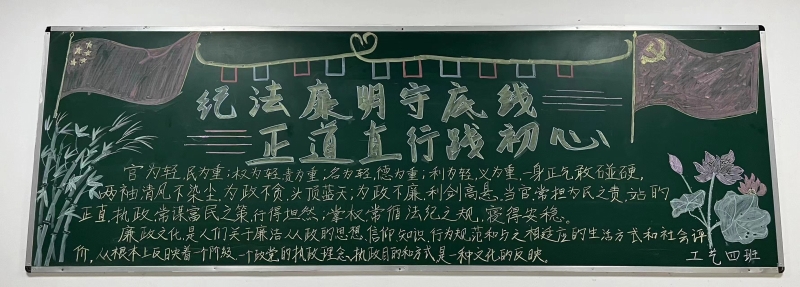 纪法廉明守底线
正道直行践初心
官为轻,民为重;权为轻,责为重;名为轻,德为重;利为轻,义为重,一身正气敢碰硬,
两袖清风不染尘,为政不贪,头顶蓝天;为政不廉,利剑高悬,当官常担为民之责,站的
正直,执政常谋富民之策,行得坦然,掌权常循法纪之规,寝得安稳。
廉政文化,是人们关于廉洁从政的思想,信仰,知识,行为规范和与之相适应的生活方式和社会评
价,从根本上反映着一个阶级,一个政党的执政理念、执政目的和方式是一种文化的反映。
工艺四班